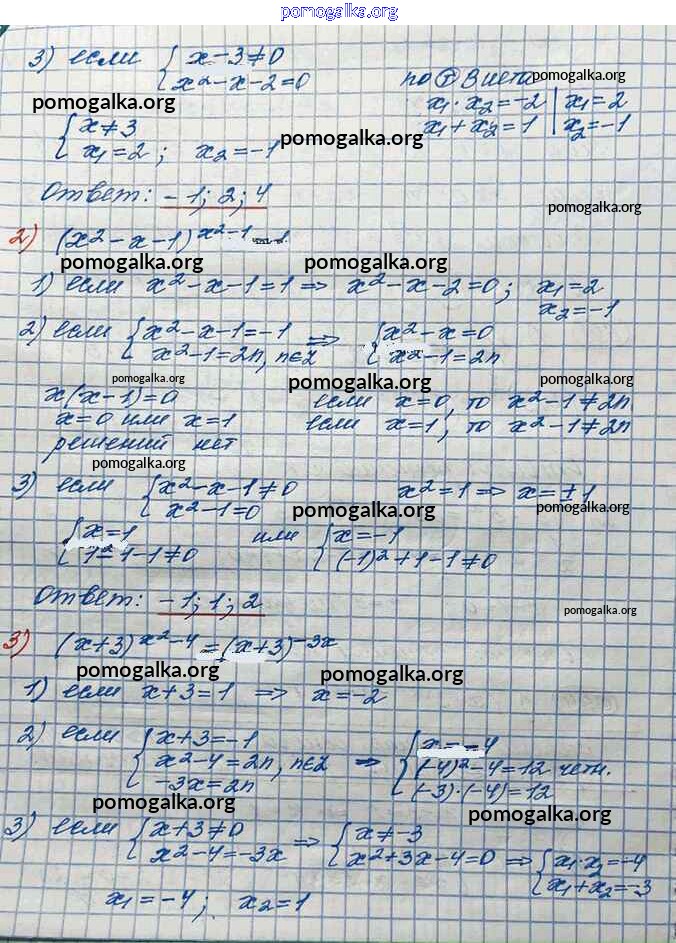 pomogalka.org
3) если { x-3≠0
x²-x-2=0
по Т Виета
pomogalka.org
x₁·x₂=-2 | x₁=2
x₁+x₂=1 | x₂=-1
pomogalka.org
{ x≠3
x₁=2; x₂=-1
pomogalka.org
Ответ: -1; 2; 4
pomogalka.org
2) (x²-x-1)^(x²-1)
pomogalka.org pomogalka.org
1) если x²-x-1=1 => x²-x-2=0; x₁=2
x₂=-1
2) если { x²-x-1=-1 => { x²-x=0
x²-1=2n, n∈Z x²-1=2n
pomogalka.org pomogalka.org pomogalka.org
x(x-1)=0 если x=0, то x²-1≠2n
x=0 или x=1 если x=1, то x²-1≠2n
решений нет
pomogalka.org
3) если { x²-x-1≠0 x²=1 => x=±1
x²-1=0
pomogalka.org pomogalka.org
{ x=1 или { x=-1
1²-1-1≠0 (-1)²+1-1≠0
Ответ: -1; 1; 2
pomogalka.org
3) (x+3)^(x²-4)=(x+3)^(-3x)
pomogalka.org pomogalka.org
1) если x+3=1 => x=-2
2) если { x+3=-1 { x=-4
x²-4=2n, n∈Z => (-4)²-4=12 четн.
-3x=2n (-3)·(-4)=12
pomogalka.org pomogalka.org
3) если { x+3≠0 => { x≠-3
x²-4=-3x x²+3x-4=0 => { x₁·x₂=-4
x₁+x₂=-3
x₁=-4; x₂=1